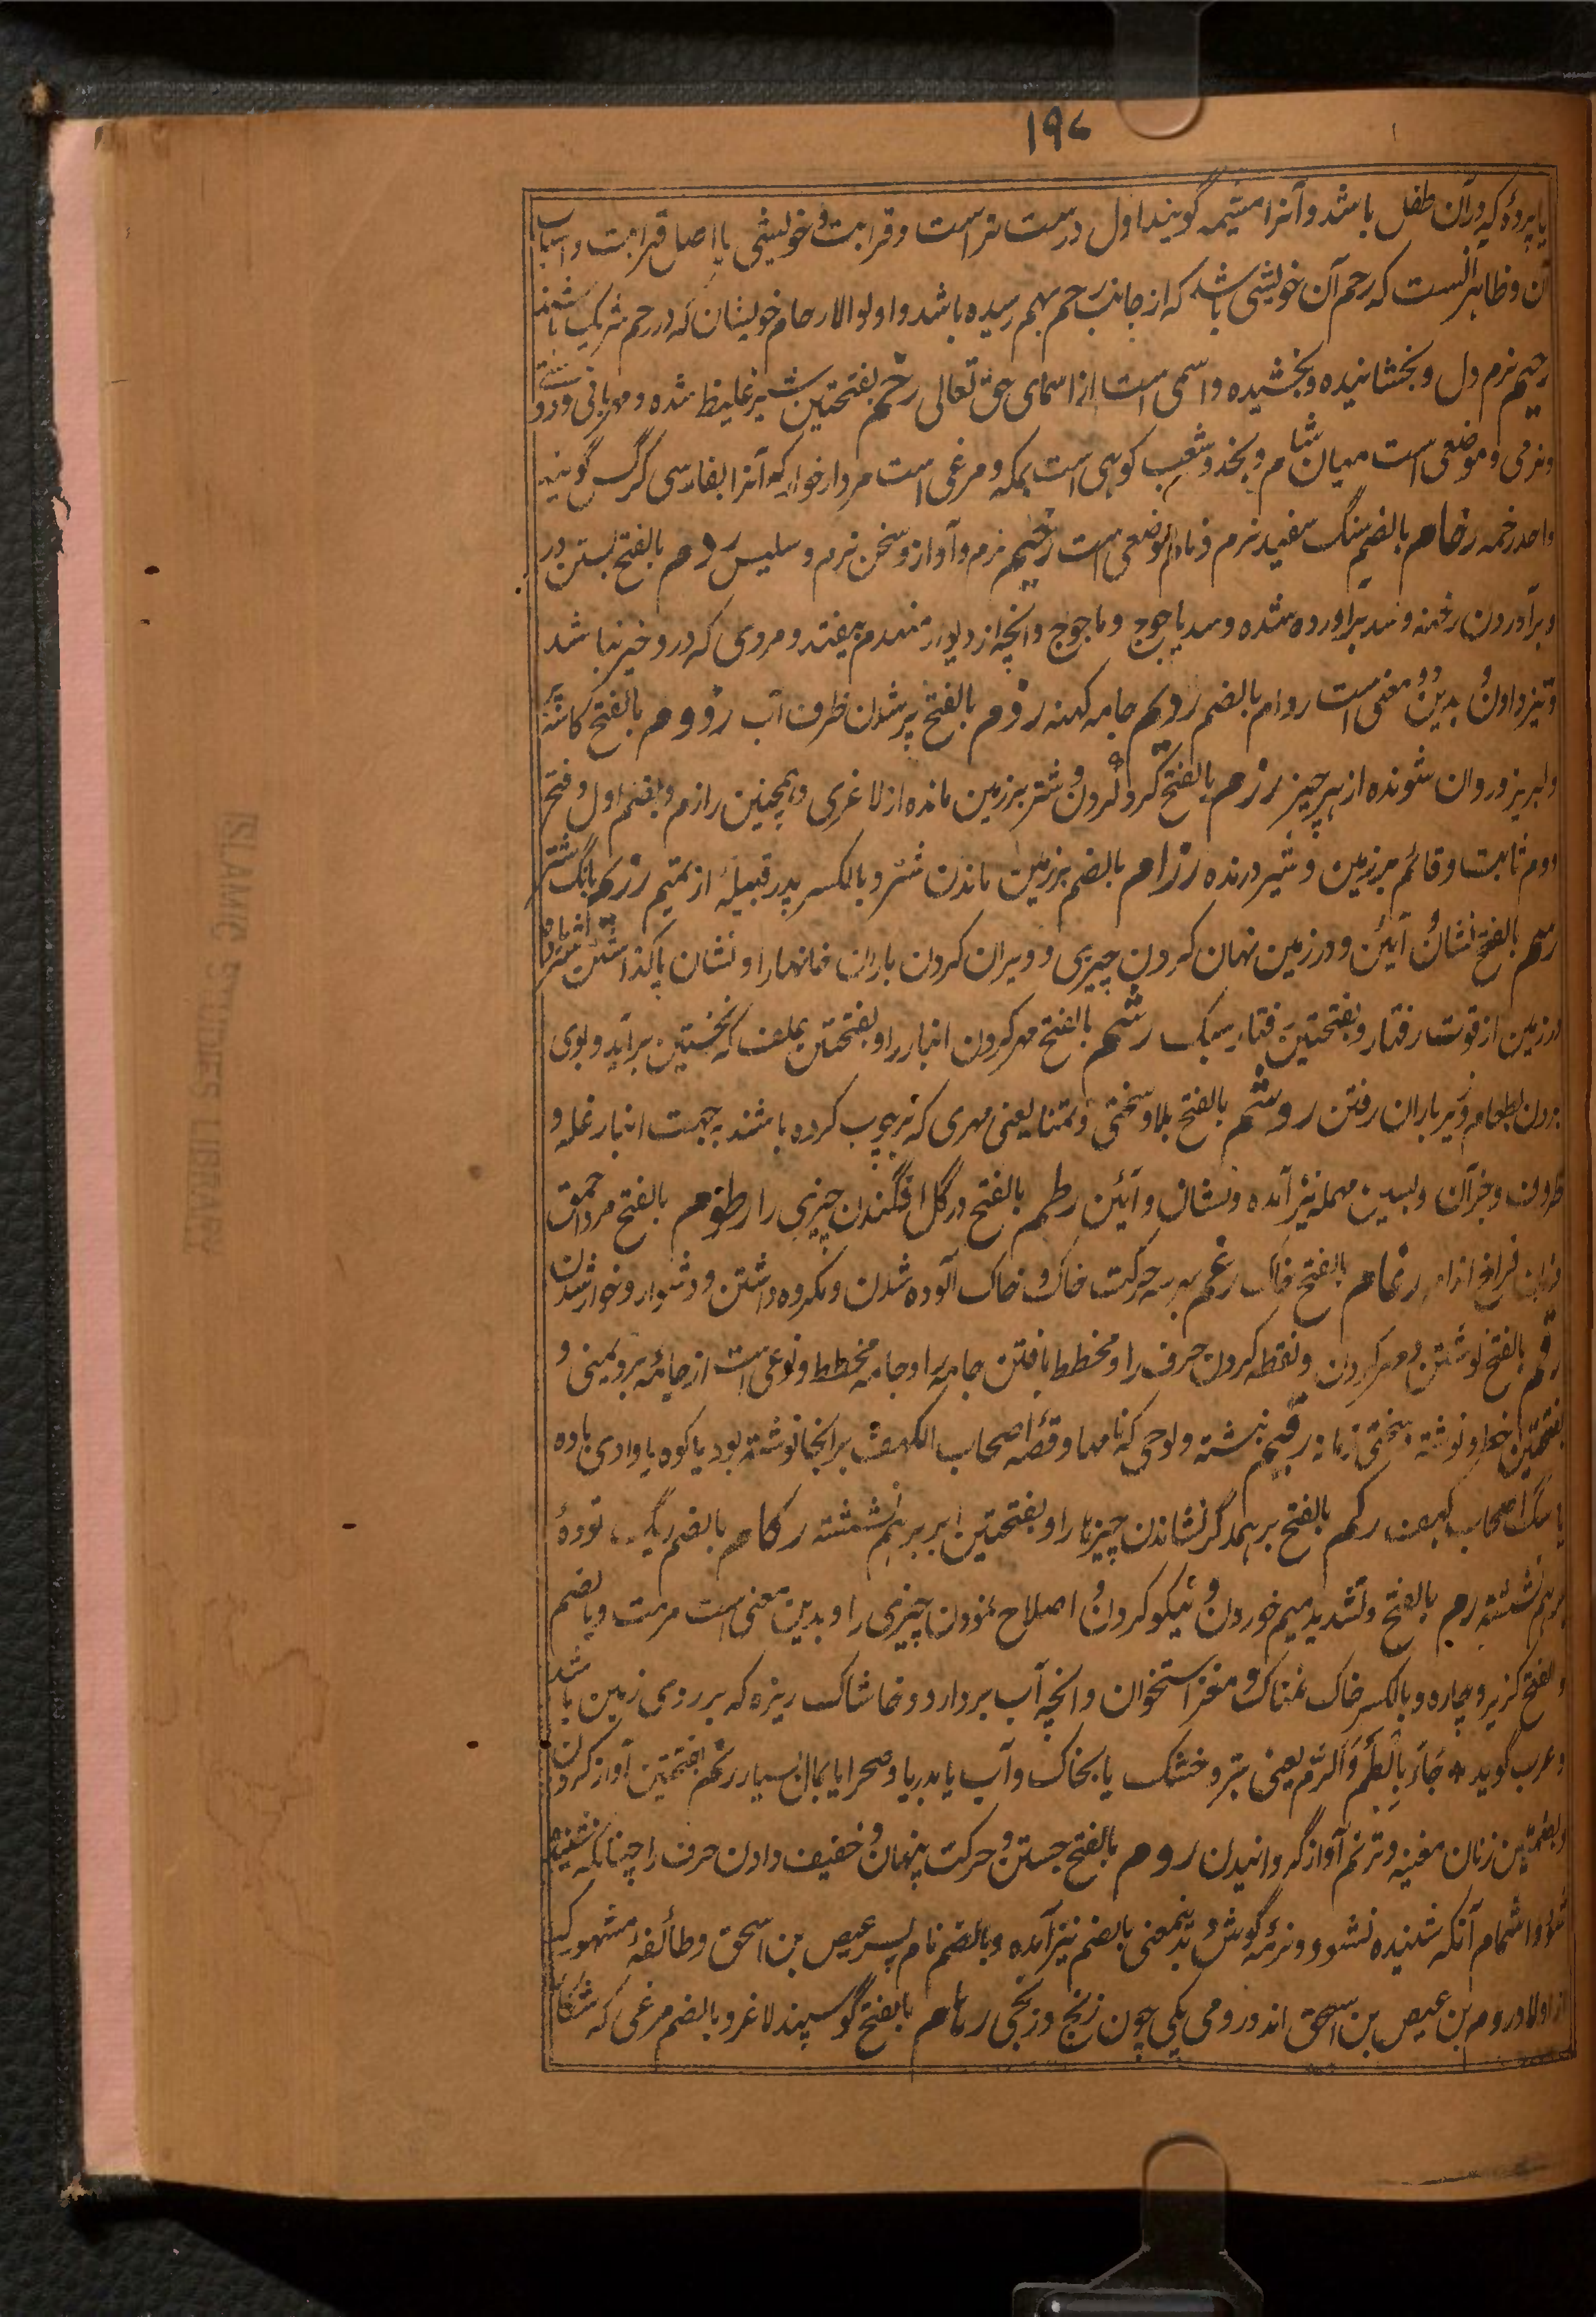 ۱۹۷
یا پردۀ که در آن طفل باشد و آنرا مشیمه گویند اول درست تر است و قرابت و خویشی یا اصل قرابت و اسباب
آن و ظاهر آنست که رحم آن خویشی باشد که از جانب رحم بهم رسیده باشد و اولو الارحام خویشان که در رحم شریک باشند
رحیم نرم دل و بخشاینده و بخشیده و اسمی است از اسمای حق تعالی رخم بفتحتین شیر غلیظ شده و مهربانی و دوستی
و نرمی و موضعی است میان شام و نجد و شعب کوهی است بمکه و مرغی است مردار خوار که آنرا بفارسی کرگس گویند
واحد رخمه رخام بالضم سنگ سفید نرم و نام موضعی است رخیم نرم و آواز و سخن نرم و سلیس ردم بالفتح بستن در
و برآوردن رخنه و سد برآورده شده و سد یاجوج و ماجوج و آنچه از دیوار منهدم بیفتد و مردی که درو خیر نباشد
و تیز دادن و بدین دو معنی است ردام بالضم ردیم جامه کهنه رذم بالفتح پر شدن ظرف آب رذوم بالفتح کاسۀ
و لبریز و روان شونده از هر چیز رزم بالفتح گرد کردن و شتر بر زمین مانده از لاغری و همچنین رازم و بضم اول و فتح
دوم ثابت و قائم بر زمین و شیر درنده رزام بالضم بر زمین ماندن شتر و بالکسر پدر قبیلۀ از تمیم رزم بانگ شتر
رسم بالفتح نشان و آیین و در زمین نهان کردن چیزی و ویران کردن باران خانها را و نشان پا گذاشتن شتر
در زمین از قوت رفتار و بفتحتین رفتار سبک رشم بالفتح مهر کردن انبار را و بفتحتین علف که نخستین برآید و بوی
بردن بطعام و زیر باران رفتن روشم بالفتح بلا و سختی و تمغا یعنی مهری که بر چوب کرده باشند بجهت انبار غله و
ظروف و جز آن و بسین مهمله نیز آمده و نشان و آئین رطم بالفتح در گل افگندن چیزی را رطوم بالفتح مرد احمق
و زن فراخ اندام رغام بالفتح خاک رغم بهر سه حرکت خاک و خاک آلوده شدن و مکروه داشتن و دشوار و خوار شدن
رقم بالفتح نوشتن و مهر کردن و نقطه کردن حرف را و مخطط بافتن جامه را و جامه مخطط و نوعی است از جامۀ برد یمنی و
بفتحتین خط و نوشته و سختی زمانه رقیم نبشته و لوحی که نامها و قصۀ اصحاب الکهف بر آنجا نوشته بود یا کوه یا وادی یا ده
یا سگ اصحاب کهف رکم بالفتح بر همدگر نشاندن چیزها را و بفتحتین ابر بر هم نشسته رکام بالضم ریگ تودۀ
بر هم نشسته رم بالفتح و تشدید میم خوردن و نیکو کردن و اصلاح نمودن چیزی را و بدین معنی است مرمت و بالضم
و الفتح گزیر و چاره و بالکسر خاک نمناک و مغز استخوان و آنچه آب بردارد و خاشاک ریزه که بر روی زمین باشد
و عرب گوید جَاءَ بِالطِّمِّ وَالرِّمِّ یعنی بتر و خشک یا بخاک و آب یا بدریا و صحرا یا بمال بسیار رنم بفتحتین آواز کردن
و بضمتین زنان مغنیه و ترنم آواز گردانیدن روم بالفتح جستن و حرکت پنهان و خفیف دادن حرف را چنانکه شنیده
شود و اشمام آنکه شنیده نشود و نرمۀ گوش و بدینمعنی بالضم نیز آمده و بالضم نام پسر عیص بن اسحق و طائفۀ مشهور که
از اولاد روم بن عیص بن اسحق اند و رومی یکی چون زنج و زنجی رهام بالفتح گوسپند لاغر و بالضم مرغی که شکار
ISLAMIC STUDIES LIBRARY